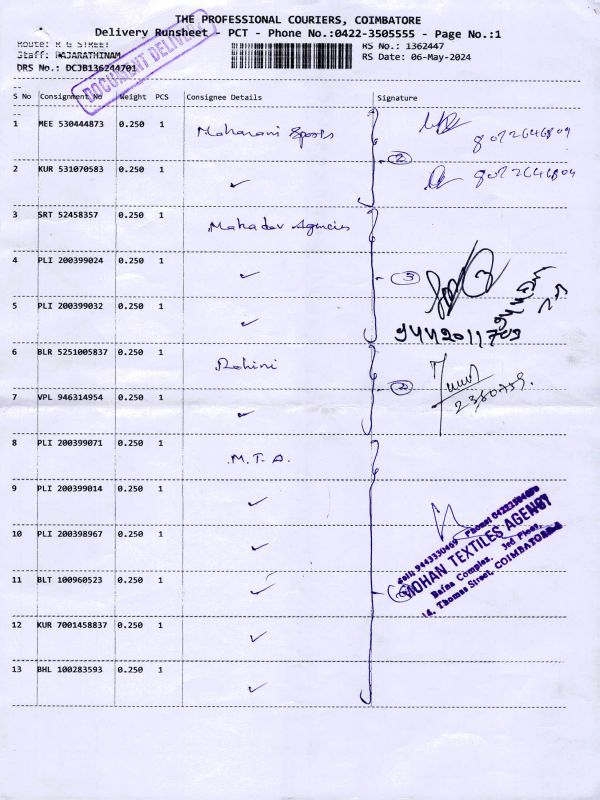 THE PROFESSIONAL COURIERS, COIMBATORE
Delivery Runsheet - PCT - Phone No.:0422-3505555 - Page No.:1
Route: M G STREET RS No.: 1362447
Staff: RAJARATHINAM RS Date: 06-May-2024
DRS No.: DCJB136244701
DOCUMENT DELIVERY
S No Consignment No Weight PCS Consignee Details Signature
1 MEE 530444873 0.250 1 Maharani Sports
8072646809
2 KUR 531070583 0.250 1 ✓ 2 8072646804
3 SRT 52458357 0.250 1 Mahadev Agencies
4 PLI 200399024 0.250 1 ✓ 3
5 PLI 200399032 0.250 1 ✓
6 BLR 5251005837 0.250 1 Rohini
7 VPL 946314954 0.250 1 ✓ 2 2380759.
8 PLI 200399071 0.250 1 M.T.A.
9 PLI 200399014 0.250 1 ✓
10 PLI 200398967 0.250 1 ✓
11 BLT 100960523 0.250 1 ✓
12 KUR 7001458837 0.250 1 ✓
13 BHL 100283593 0.250 1 ✓
MOHAN TEXTILES AGENCY
Bafna Complex, 3rd Floor,
14, Thomas Street, COIMBATORE